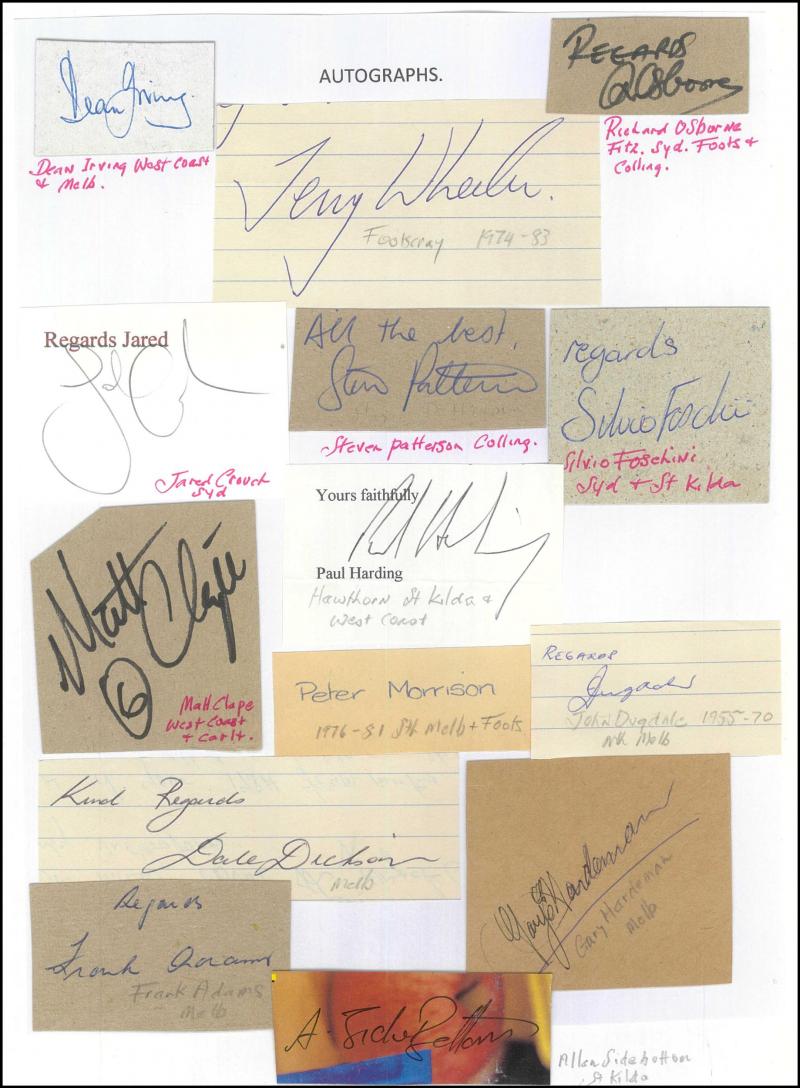 AUTOGRAPHS.
Dean Irving
Dean Irving West Coast
+ Melb.
REGARDS
R Osborne
Richard Osborne
Fitz. Syd. Foots +
Colling.
Terry Wheeler.
Footscray 1974-83
Regards Jared
Jared Crouch
Syd
All the best,
Steve Patterson
Steven Patterson Colling.
regards
Silvio Foschini
Silvio Foschini
Syd + St Kilda
Matt Clape
6
Matt Clape
West Coast
+ Carlt.
Yours faithfully
Paul Harding
Paul Harding
Hawthorn St Kilda +
West Coast
Peter Morrison
1976-81 Sth Melb + Foots
REGARDS
Dugdale
John Dugdale 1955-70
Nth Melb
Kind Regards
Dale Dickson
Melb
Gary Hardeman
Gary Hardeman
Melb
Regards
Frank Adams
Frank Adams
Melb
A. Sidebottom
Allan Sidebottom
St Kilda